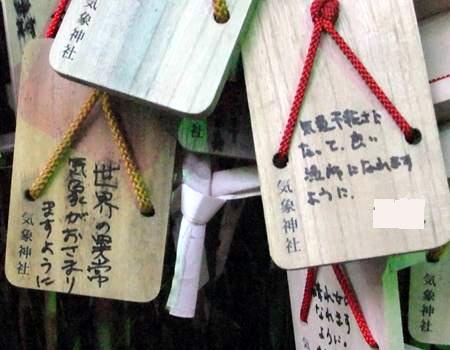 気象神社
世界の異常
気象がおさまり
ますように
気象神社
気象予報士に
なって、良い
漁師になれます
ように.
気象神社
晴れ女に
なれます
ように。
気象神社